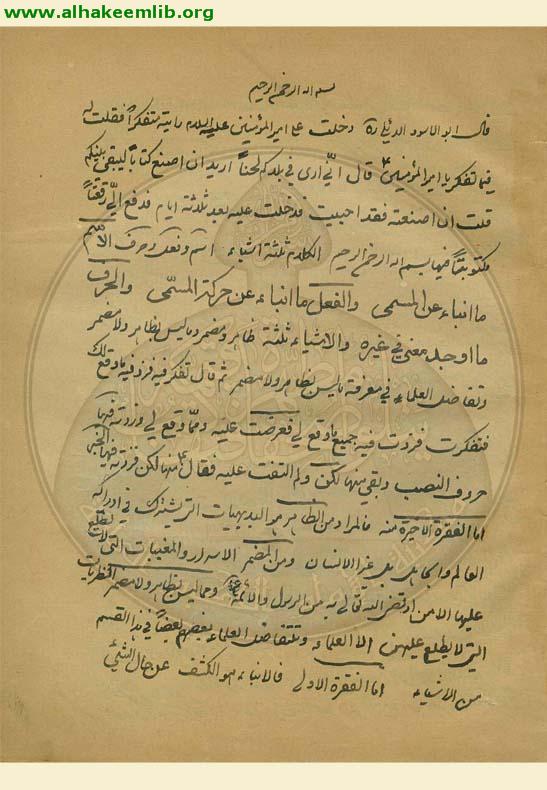 www.alhakeemlib.org
بسم الله الرحمن الرحيم
قال ابو الاسود الدئلي دخلت على امير المؤمنين عليه السلام رايته متفكراً فقلت له
فيما تفكر يا امير المؤمنين قال انّي ارى في بلدكم لحناً اريد ان اصنع كتاباً ليبقى بلينكم
قلت ان اصنعته فقد احييت فدخلت عليه بعد ثلثة ايام فدفع اليّ رقعتاً
مكتوبتاً فيها بسم الله الرحمن الرحيم الكلام ثلثة اشياء اسم وفعل وحرف الاسم
ما انباء عن المسمى والفعل ما انباء عن حركة المسمّى والحرف
ما اوجد معنى في غيره والاشياء ثلثة ظاهر ومضمر وما ليس بظاهر ولا مضمر
وتفاضل العلماء في معرفة ما ليس بظاهر ولا مضمر ثم قال تفكر فيه فزد فيه ما وقع لك
فتفكرت فزدت فيه جميع ما وقع لي فعرضت عليه وممّا وقع لي وزدته فيها
حروف النصب وبقي منها لكن ولم التفت عليه فقال منها لكن فزدته فيها
اما الفقرة الاخيرة منه فالمراد من الظاهر هو البديهيات التي يشترك في ادراكه
العالم والجاهل بل غير الانسان ومن المضمر الاسرار والمغيبات التي لا يطلع
عليها الا من ارتضى الله تعالى به من الرسول والائمة وما ليس بظاهر ولا مضمر النظريات
التي لا يطلع عليهن الا العلماء وتتفاضل العلماء بعضهم بعضاً في هذا القسم
من الاشياء اما الفقرة الاولى فالانباء هو الكشف عن حال الشئ